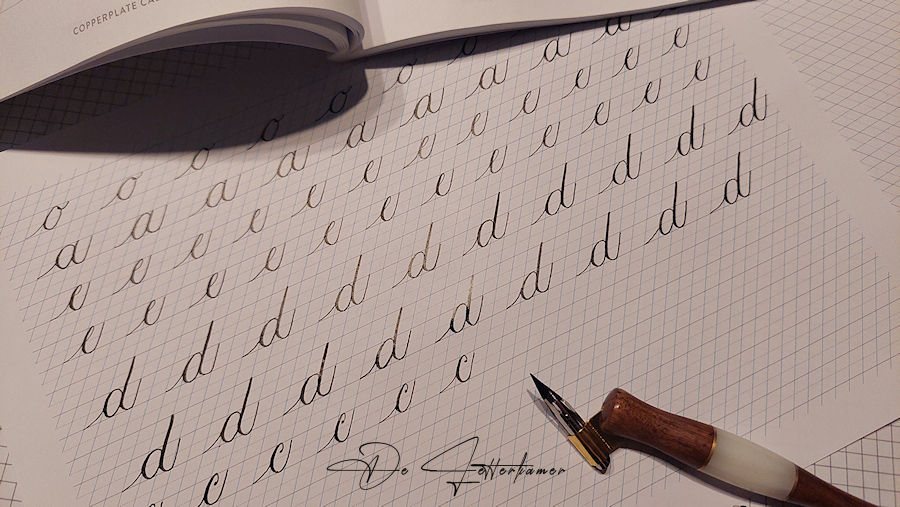 COPPERPLATE CA
o o o o o o o
a a a a a a a a a
e e e e e e e e e e e e
e e e e e e e e e e e e
d d d d d d d d d d
d d d d d d d d d
c c c c c
De Letterkamer